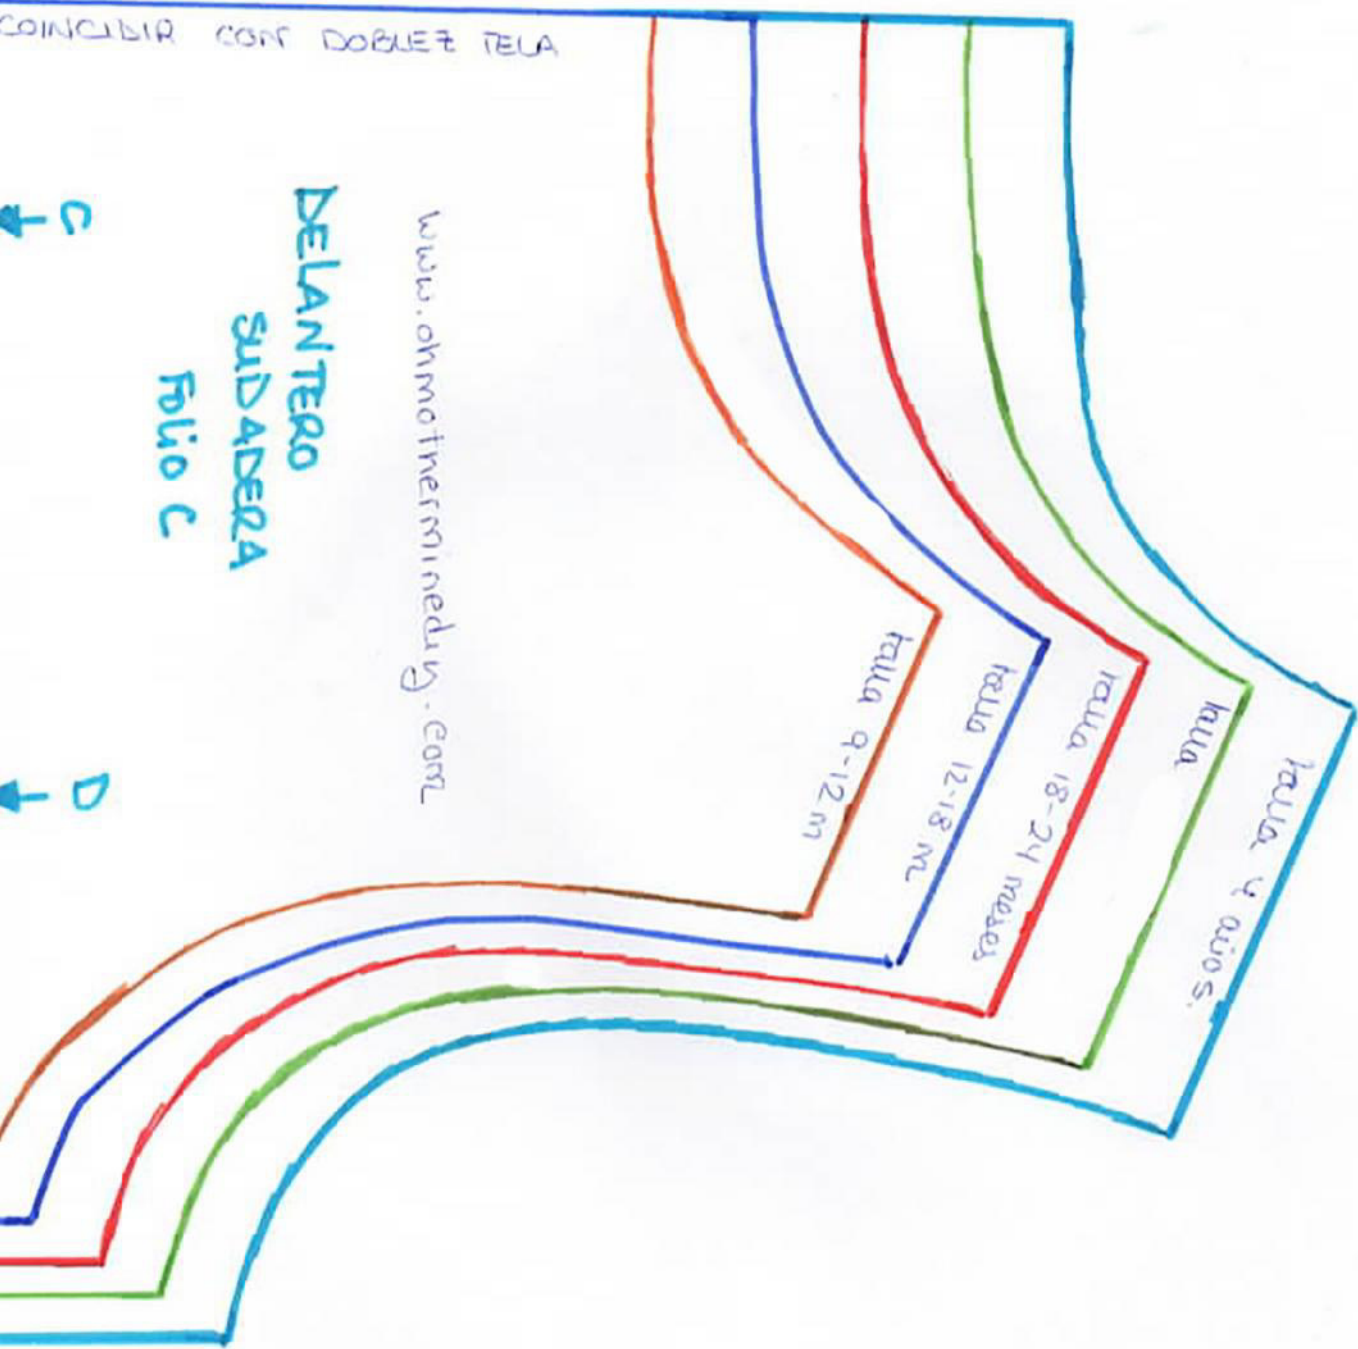 COINCIDIR CON DOBLEZ TELA
C
D
DELANTERO
SUDADERA
Folio C
www.ohmotherminediy.com
talla 9-12 m
talla 12-18 m
talla 18-24 meses
talla
talla 4 años.